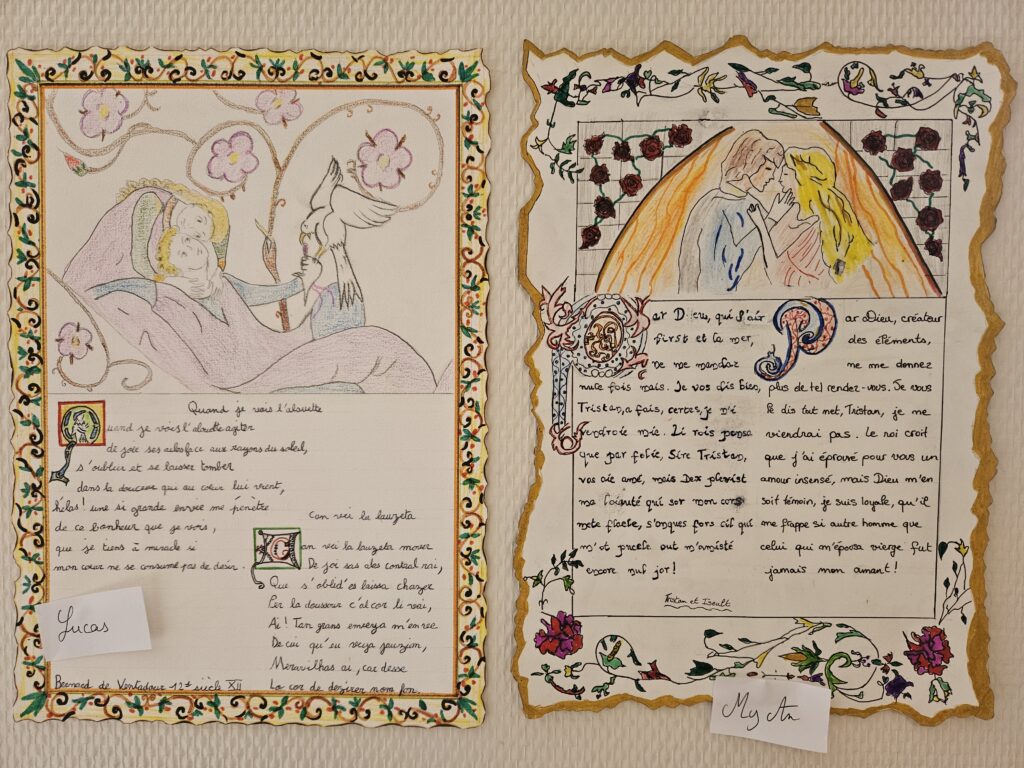 Quand je vois l'alouette
Quand je vois l'alouette agiter
de joie ses ailes face aux rayons du soleil,
s'oublier et se laisser tomber
dans la douceur qui au cœur lui vient,
hélas! une si grande envie me pénètre
de ce bonheur que je vois,
que je tiens à miracle si
mon cœur ne se consume pas de désir.
Can vei la lauzeta
Can vei la lauzeta mover
De joi sas alas contral rai,
Que s'oblid'es laissa chazer
Per la doussour c'al cor li vai,
Ai! Tan grans enveya m'en ve
De cui qu'eu veya jauzion,
Meravilhas ai, car desse
Lo cor de desirer nom fon.
Bernard de Ventadour 12e siècle XII
Lucas
Par Dieu, qui l'air
first et la mer,
ne me mandez
nule fois mais. Je vos dis bien,
Tristan, a fais, certes, je n'i
vendroie mie. Li rois pense
que par folie, Sire Tristan,
vos aie amé, mais Dex plevist
ma loiauté qui sor mon cors
mete flaele, s'onques fors cil qui
m'ot pucele out m'amisté
encore nul jor!
Par Dieu, créateur
des éléments,
ne me donnez
plus de tel rendez-vous. Je vous
le dis tout net, Tristan, je ne
viendrai pas. Le roi croit
que j'ai éprouvé pour vous un
amour insensé, mais Dieu m'en
soit témoin, je suis loyale, qu'il
me frappe si autre homme que
celui qui m'épousa vierge fut
jamais mon amant!
Tristan et Iseult
My An